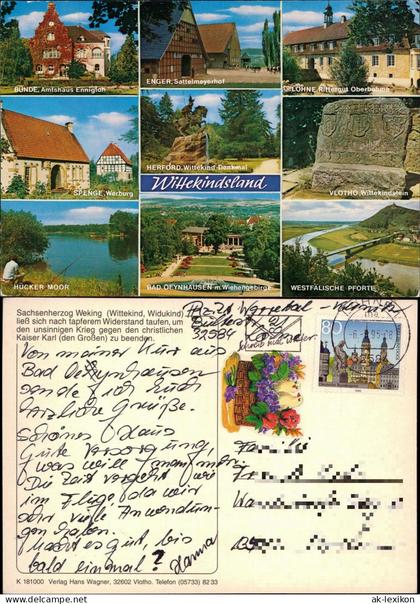 BÜNDE, Amtshaus Ennigloh
ENGER, Sattelmeyerhof
LÖHNE, Rittergut Oberbehme
SPENGE, Werburg
HERFORD, Wittekind-Denkmal
VLOTHO, Wittekindstein
Wittekindsland
HÜCKER MOOR
BAD OEYNHAUSEN m. Wiehengebirge
WESTFÄLISCHE PFORTE
Sachsenherzog Weking (Wittekind, Widukind)
ließ sich nach tapferem Widerstand taufen, um
den unsinnigen Krieg gegen den christlichen
Kaiser Karl (den Großen) zu beenden.
Von meiner Kur aus
Bad Oeynhausen
sende ich Euch
herzliche Grüße.
Schönes Haus
Gute Versorgung
was will man mehr.
Die Zeit vergeht wie
im Fluge da wir
sehr viele Anwendun-
gen haben.
Macht es gut, bis
bald einmal ? Hanna
32584 Löhne
80
Familie
K 181000 Verlag Hans Wagner, 32602 Vlotho. Telefon (05733) 82 33
© www.ak-lexikon.de